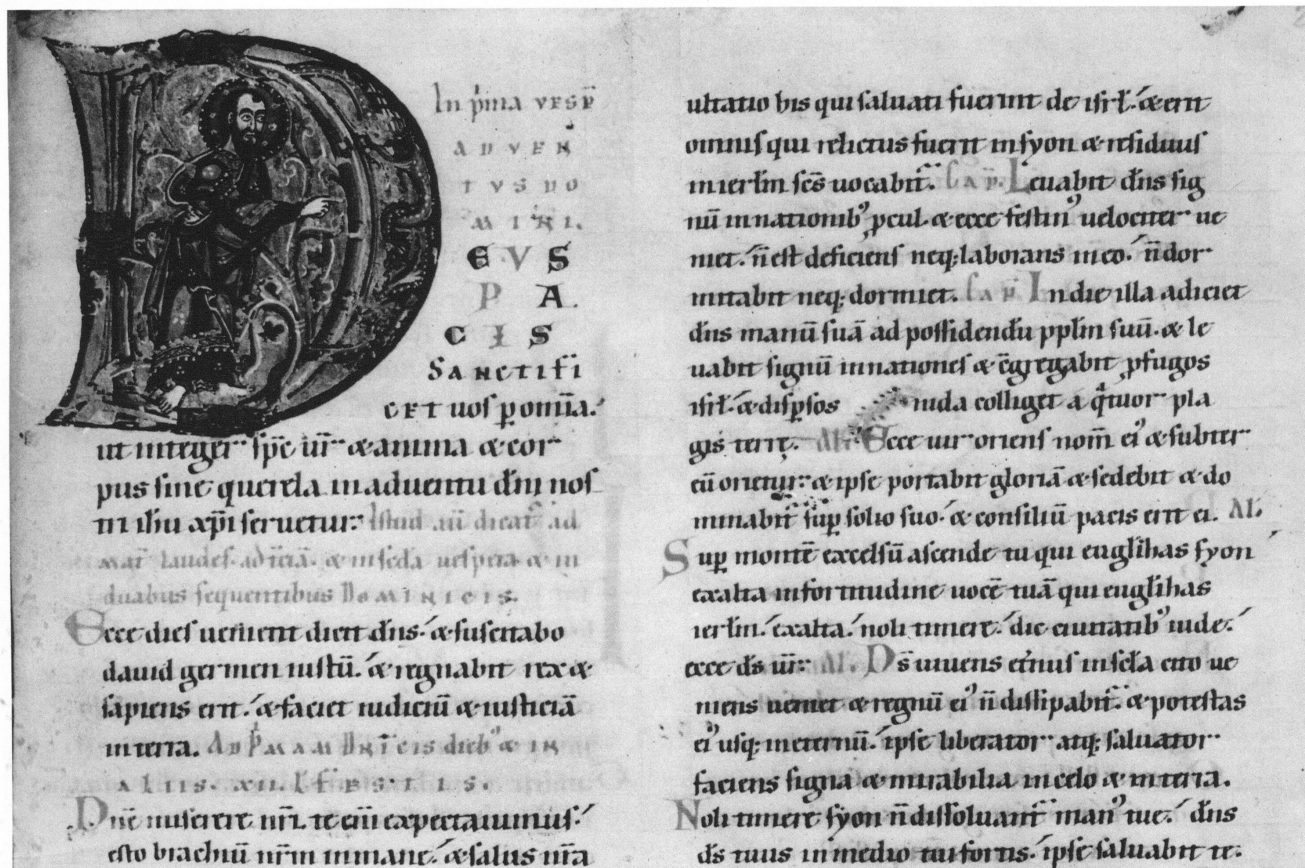 In p̄ma vesp̄
ADVEN
TVS DO
MINI.
EVS
PA
CIS
SANCTIFI
CET uos p̱ omīa.
ut integer sp̄c ur̄ & anima & cor
pus sine querela in aduentu dn̄i nos
tri ih̄u xp̄i seruetur. Istud au̅ dicat̃ ad
mat̄ laudes. ad t̄ciā. & in sc̄da uespera & in
duabus sequentibus DOMINICIS.
Ecce dies uenient dicit dn̄s. & suscitabo
dauid germen iustū. & regnabit rex &
sapiens erit. & faciet iudiciū & iusticiā
in terra. AD P̄MAM DN̄ICIS dieb᷒ & IN
ALIIS. XII. L̄ FESTIS.
Dn̄e miserere nr̄i. te eni̅ expectauimus.
esto brachiū nr̄m in mane. & salus nr̄a
ultatio his qui saluati fuerint de isrl̄. & erit
omnis qui relictus fuerit in syon & residuus
in ierlm̄ sc̄s uocabit̃. Cap̄. Leuabit dn̄s sig
nū in nationib᷒ p̱cul. & ecce festin᷒ uelociter ue
niet. n̄ est deficiens neq; laborans in eo. n̄ dor
mitabit neq; dormiet. Cap̄ In die illa adiciet
dn̄s manū suā ad possidendū ppl̄m suū. & le
uabit signū in nationes & c̄gregabit p̱fugos
isrl̄. & disp̱sos iuda colliget a q̄tuor pla
gis terrę. Al̄. Ecce uir oriens nom̄ ei᷒ & subter
eū orietur. & ipse portabit gloriā & sedebit & do
minabit̃ sup̱ solio suo. & consiliū pacis erit ei. Al̄.
Sup̱ montē excelsū ascende tu qui eugl̄izas syon
exalta in fortitudine uocē tuā qui eugl̄izas
ierlm̄. exalta. noli timere. dic ciuitatib᷒ iude.
ecce ds̄ ur̄. Al̄. Ds̄ uiuens et̄nus in sc̄la cito ue
niens ueniet & regnū ei᷒ n̄ dissipabit̃. & potestas
ei᷒ usq; in eternū. ipse liberator atq; saluator
faciens signa & mirabilia in celo & in terra.
Noli timere syon n̄ dissoluant̃ man᷒ tue. dn̄s
ds̄ tuus in medio tui fortis. ipse saluabit te.